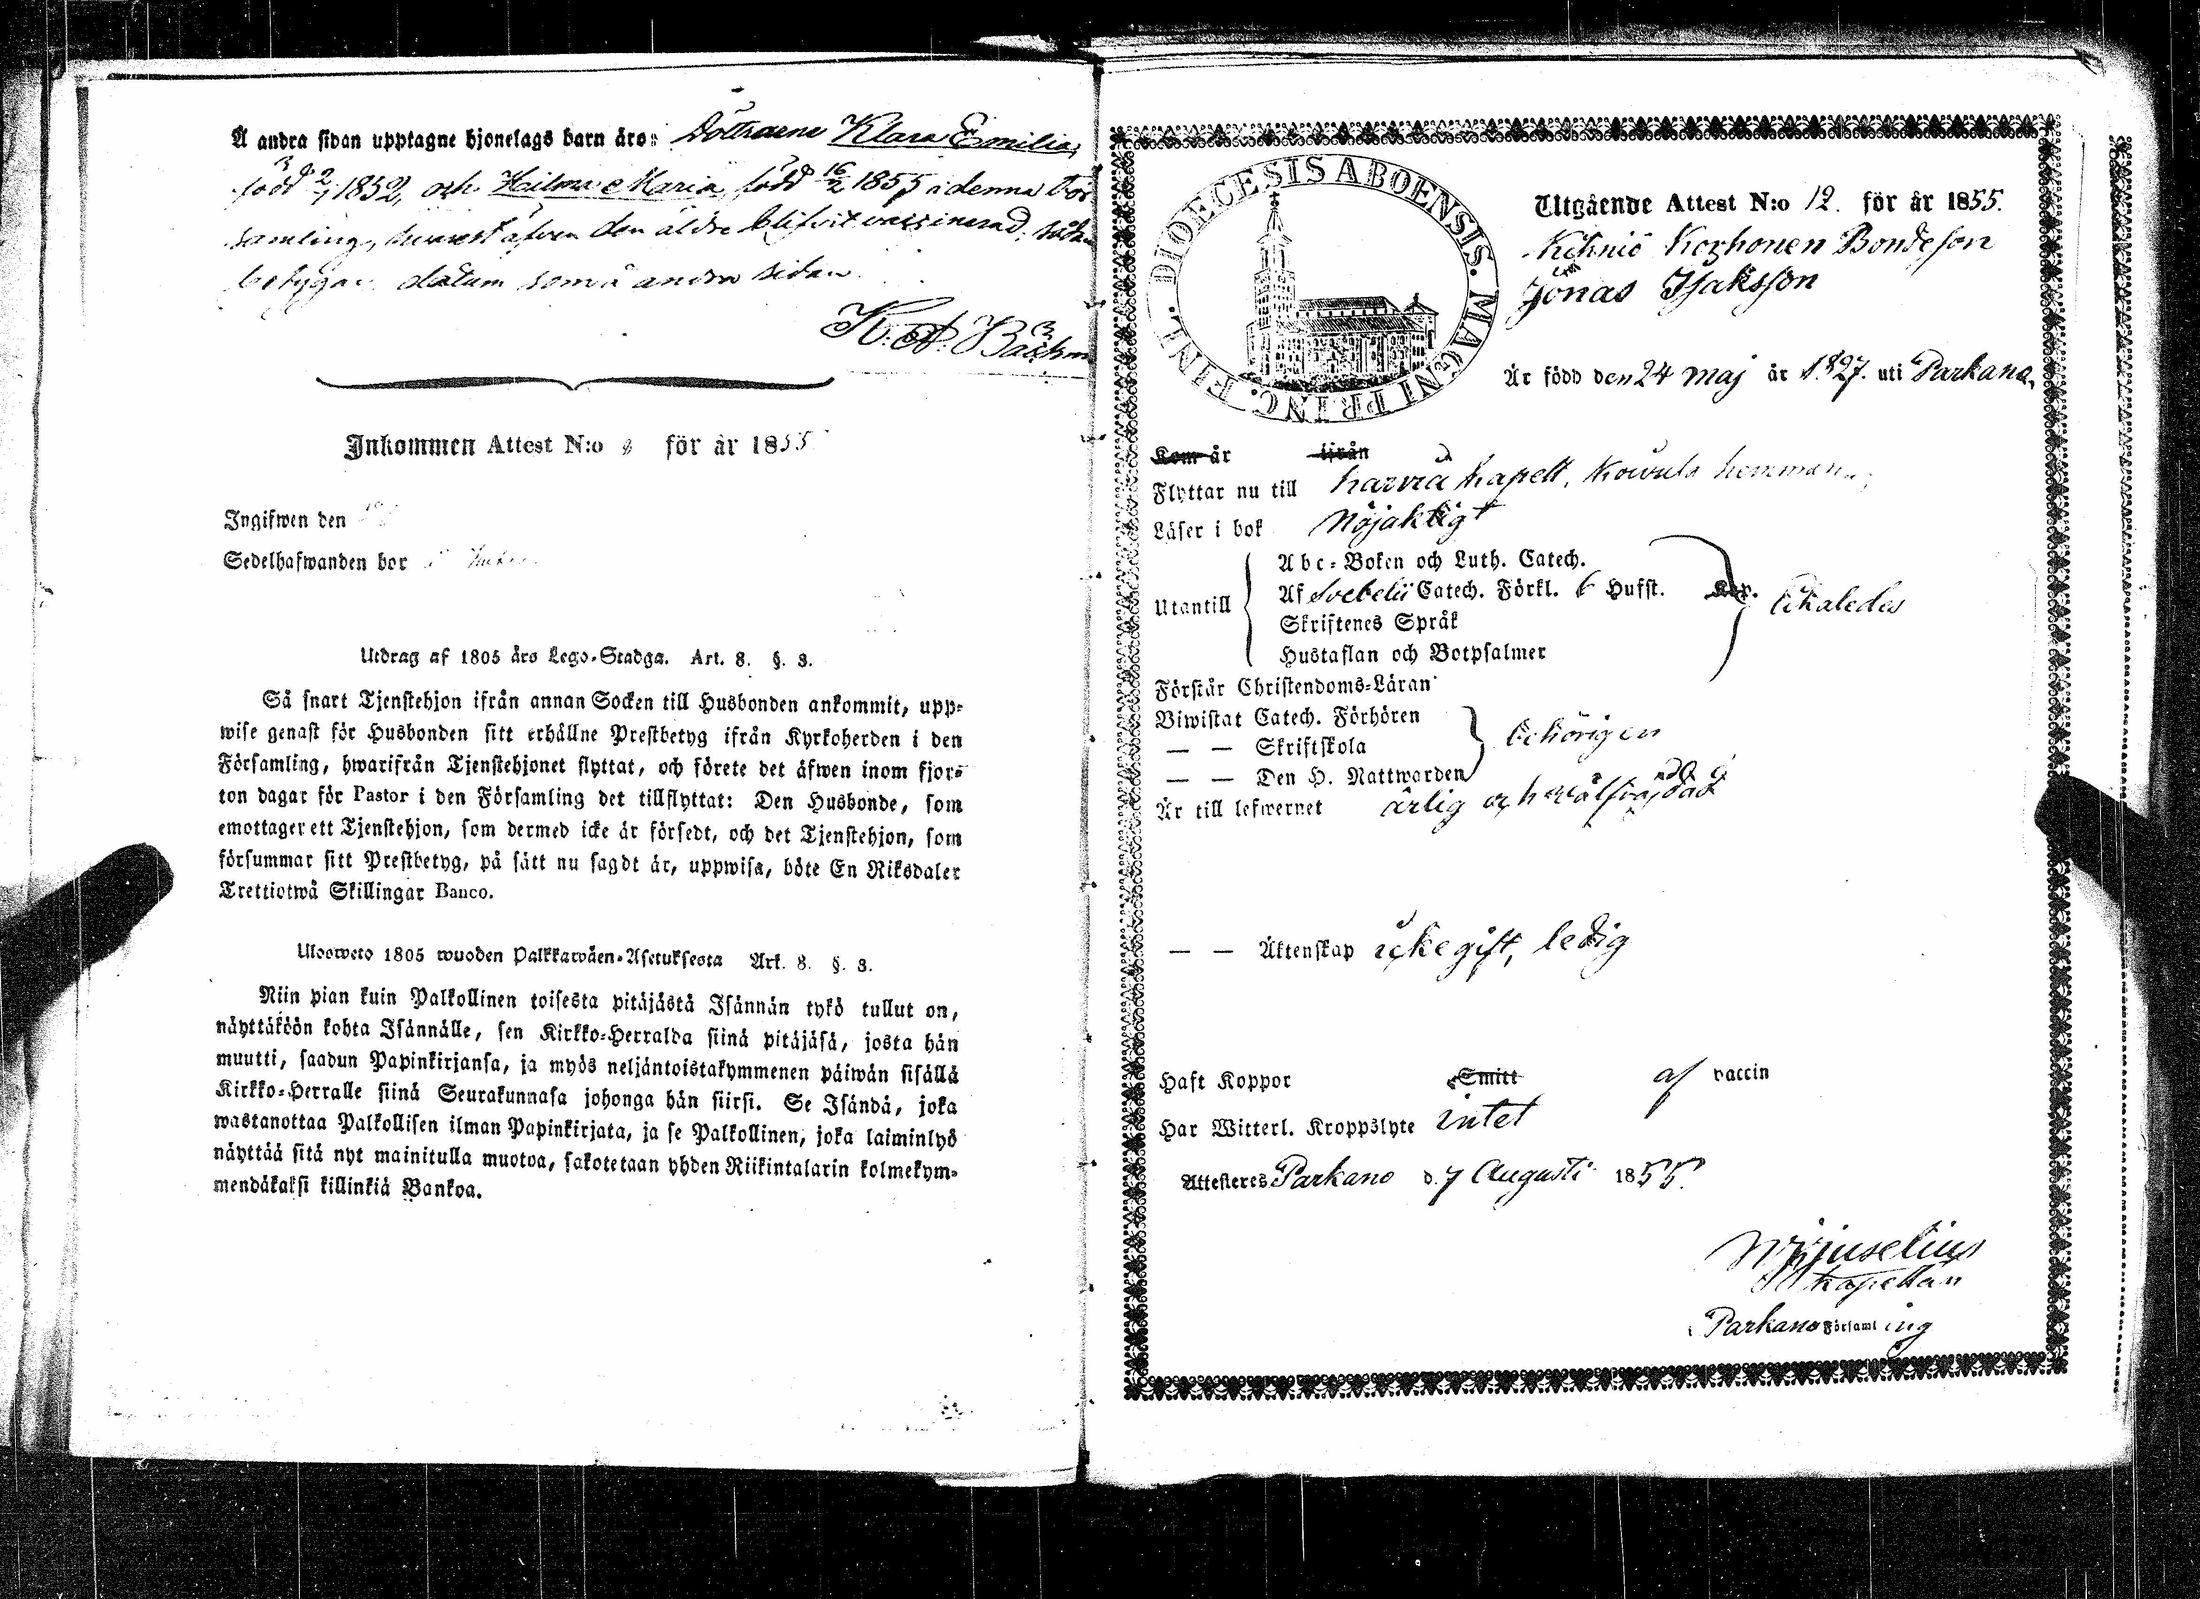 Å andra sidan upptagne hjonelags barn äro: Döttrarne Klara Emilia,
född 1852, och Hilma Maria, född 16/2 1855 i denna För
samling, hwarest äfven den äldre blifvit vaccinerad;
betygar datum som å andra sidan.
K. A. Bäckm
Inkommen Attest N:o för år 1855
Ingifwen den
Sedelhafwanden bor
Utdrag af 1805 års Lego-Stadga. Art. 8. §. 3.
Så snart Tjenstehjon ifrån annan Socken till Husbonden ankommit, upp-
wise genast för Husbonden sitt erhållne Prestbetyg ifrån Kyrkoherden i den
Församling, hwarifrån Tjenstehjonet flyttat, och förete det äfwen inom fjor-
ton dagar för Pastor i den Församling det tillflyttat: Den Husbonde, som
emottager ett Tjenstehjon, som dermed icke är försedt, och det Tjenstehjon, som
försummar sitt Prestbetyg, på sätt nu sagdt är, uppwisa, böte En Riksdaler
Trettiotwå Skillingar Banco.
Ulosweto 1805 wuoden Palkkawäen-Asetuksesta Art. 8. §. 3.
Niin pian kuin Palkollinen toisesta pitäjästä Isännän tykö tullut on,
näyttäköön kohta Isännälle, sen Kirkko-Herralda siinä pitäjäsä, josta hän
muutti, saadun Papinkirjansa, ja myös neljäntoistakymmenen päiwän sisällä
Kirkko-Herralle siinä Seurakunnasa johonga hän siirsi. Se Isändä, joka
wastanottaa Palkollisen ilman Papinkirjata, ja se Palkollinen, joka laiminlyö
näyttää sitä nyt mainitulla muotoa, sakotetaan yhden Riikintalarin kolmekym-
mendäkaksi killinkiä Bankoa.
DIOECESIS ABOENSIS. MAGNI PRINC. FINL.
Utgående Attest N:o 12. för år 1855.
Kihniö Korhonen Bondeson
Jonas Isaksson
Är född den 24 maj år 1827. uti Parkano,
Kom år ifrån
Flyttar nu till Karvia Kapell, hemman
Läser i bok Nöjaktigt
Utantill
Abc-Boken och Luth. Catech.
Af Svebelii Catech. Förkl. 6 Hufst. Kap.
Skriftenes Språk
Hustaflan och Botpsalmer
likaledes
Förstår Christendoms-Läran
Biwistat Catech. Förhören
— — Skriftskola
— — Den H. Nattwarden
behörigen
Är till lefwernet ärlig och wälfrejdad
— — Äktenskap icke gift, ledig
Haft Koppor Smitt af vaccin
Har Witterl. Kroppslyte intet
Attesteres Parkano d. 7 Augusti 1855.
Juselius
Kapellan
i Parkano Församling